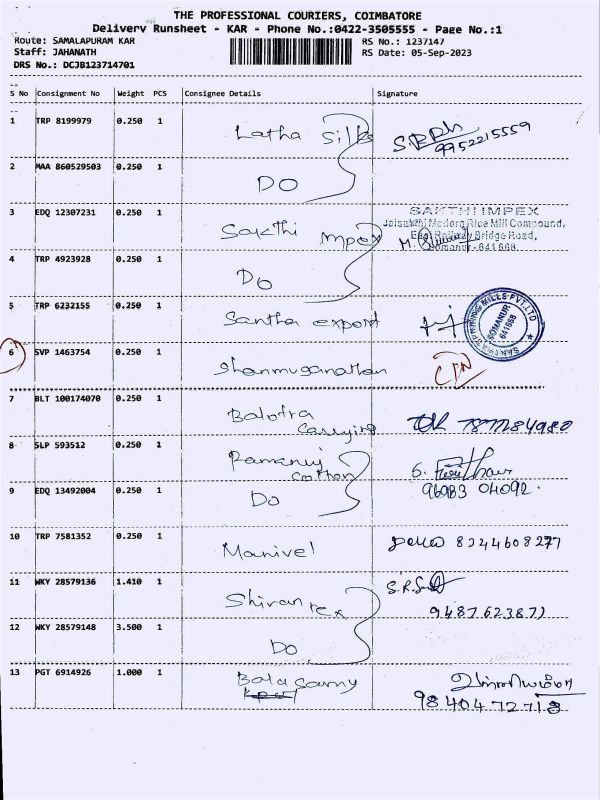 THE PROFESSIONAL COURIERS, COIMBATORE
Delivery Runsheet - KAR - Phone No.:0422-3505555 - Page No.:1
Route: SAMALAPURAM KAR
RS No.: 1237147
Staff: JAHANATH
RS Date: 05-Sep-2023
DRS No.: DCJB123714701
S No Consignment No Weight PCS Consignee Details Signature
1 TRP 8199979 0.250 1 Latha Silks 9952215559
2 MAA 860529503 0.250 1 DO
3 EDQ 12307231 0.250 1 Sakthi Impex
SAKTHI IMPEX
Jaisakthi Modern Rice Mill Compound,
East Railway Bridge Road,
Somanur-641 668.
4 TRP 4923928 0.250 1 Do
5 TRP 6232155 0.250 1 Santha export
SPINNING MILLS PVT.LTD
SOMANUR
641668
6 SVP 1463754 0.250 1 Shanmuganathan
7 BLT 100174070 0.250 1 Balotra
Carrying
8 SLP 593512 0.250 1 Ramanuj
Cotton
9 EDQ 13492004 0.250 1 Do 96983 04092
10 TRP 7581352 0.250 1 Manivel 8344608277
11 WKY 28579136 1.410 1 Shivan tex
9487623871
12 WKY 28579148 3.500 1 Do
13 PGT 6914926 1.000 1 Bala
98404 72718